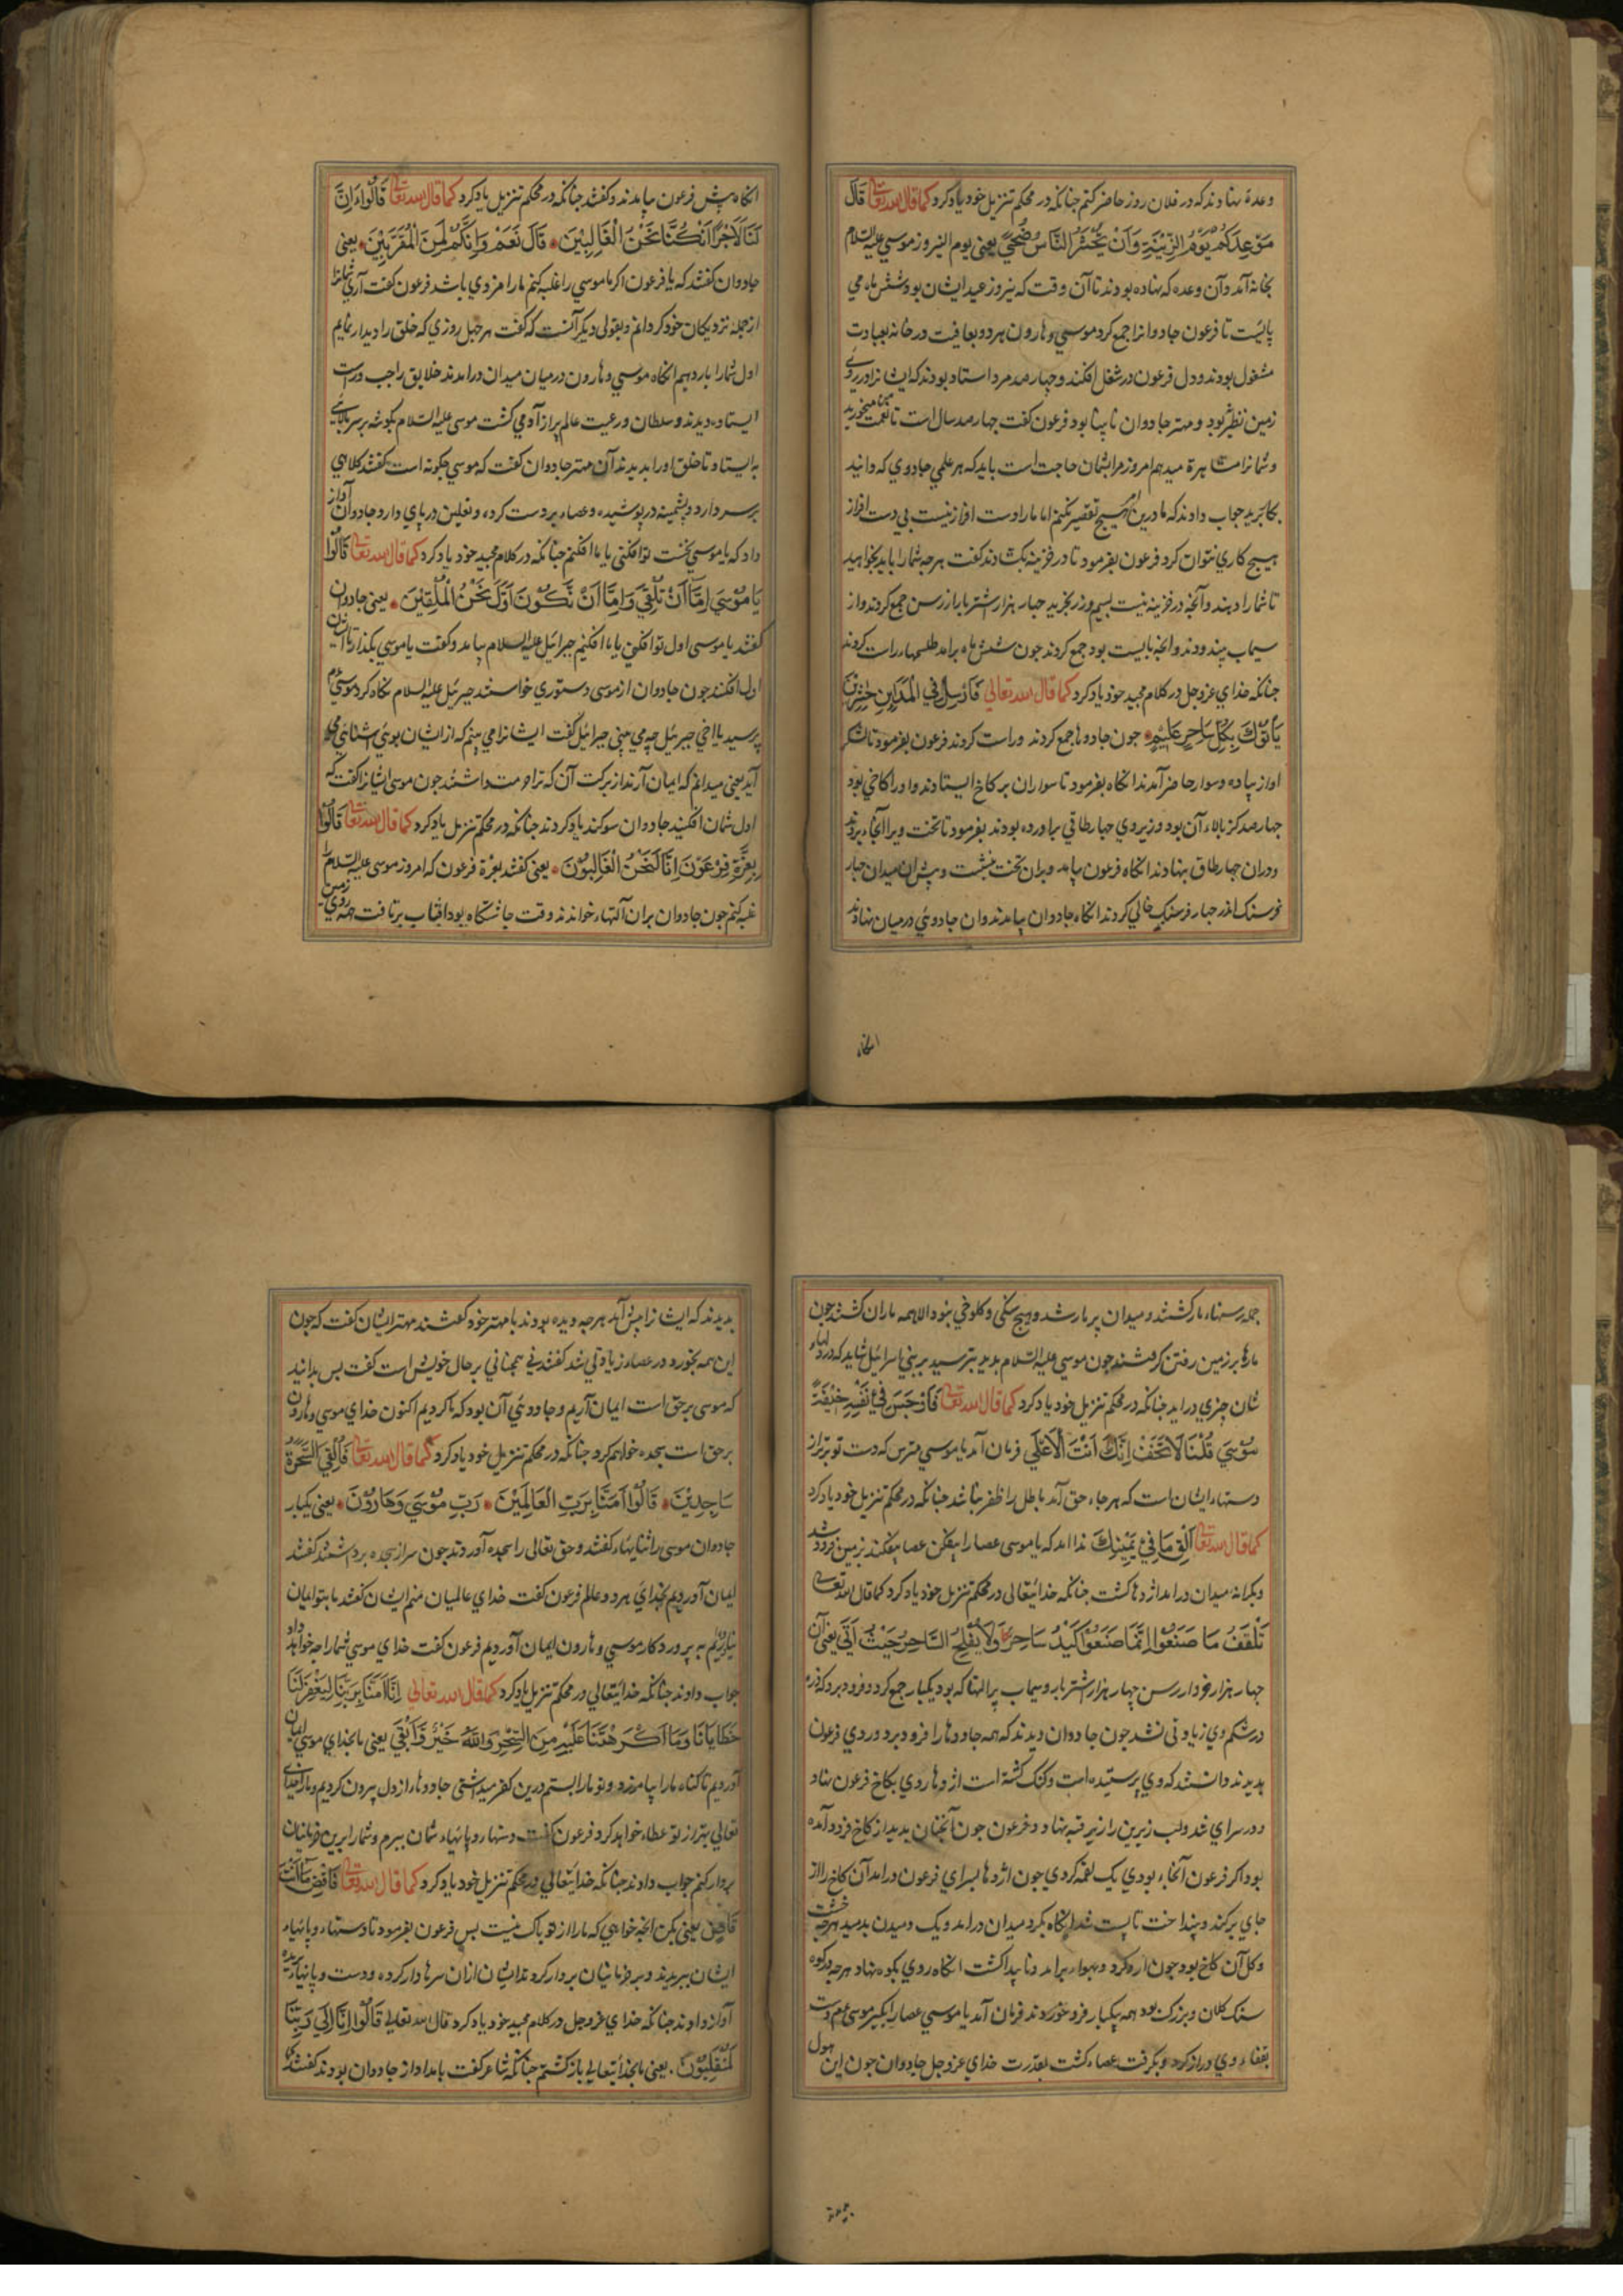 وعدۀ بنهادند که در فلان روز حاضر کنم چنانکه در محکم تنزیل خود یاد کرد کما قال الله تعالی قَالَ
مَوْعِدُكُمْ يَوْمُ الزِّينَةِ وَأَنْ يُحْشَرَ النَّاسُ ضُحًى یعنی یوم النیروز موسی علیه السلام
بخانه آمد و آن وعده که نهاده بودند تا آن وقت که نیروز عید ایشان بود شش ماه می
بایست تا فرعون جادوانرا جمع کرد موسی و هارون هر دو بعافیت در خانه بعبادت
مشغول بودند و دل فرعون در شغل افکند و چهار صد مرد استاد بودند که ایشانرا در روی
زمین نظیر نبود و مهتر جادوان نابینا بود فرعون کفت چهار صد سال است تا نعمت ما میخورید
و شمانرا مشاهره میدهم امروز مرا بشمان حاجت است باید که هر علمی جادوی که دانید
بکار برید جواب دادند که ما درین هیچ تقصیر نکنیم اما ما را دست افزار نیست بی دست افزار
هیچ کاری نتوان کرد فرعون بفرمود تا در خزینه بکشادند کفت هرچه شما را باید بخواهید
تا شما را دهند و آنچه در خزینه نیست بسیم و زر بخرید چهار هزار اشتر بار از رسن جمع کردند و از
سیماب بیندودند و انچه بایست بود جمع کردند جون شش ماه برامد طلسمهاء راست کردند
چنانکه خدای عزوجل در کلام مجید خود یاد کرد کما قال الله تعالی فَأَرْسِلْ فِي الْمَدَايِنِ حَاشِرِينَ
يَأْتُوكَ بِكُلِّ سَاحِرٍ عَلِيمٍ جون جادوها جمع کردند و راست کردند فرعون بفرمود تا لشکر
او از پیاده و سوار حاضر آمدند انکاه بفرمود تا سواران بر کاخ ایستادند و او را کاخی بود
چهار صد کز بالاء آن بود و زیر وی چهار طاقی براورده بودند بفرمود تا تخت ویرا آنجاء بردند
و در آن چهار طاق بنهادند انکاه فرعون بیامد و بران تخت بنشست و پیش آن میدان چهار
فرسنک اندر چهار فرسنک خالی کردند انکاه جادوان بیامدند و ان جادوی در میان نهادند
انکاه
انکاه پیش فرعون بیامدند و کفتند چنانکه در محکم تنزیل یاد کرد کما قال الله تعالی قَالُوا ءَإِنَّ
لَنَا لَأَجْرًا إِنْ كُنَّا نَحْنُ الْغَالِبِينَ قَالَ نَعَمْ وَإِنَّكُمْ لَمِنَ الْمُقَرَّبِينَ یعنی
جادوان کفتند که یا فرعون اکر ما موسی را غلبه کنیم ما را مزدی باشد فرعون کفت آری شمانرا
از جمله نزدیکان خود کردانم و بقولی دیکر آنست که کفت هر چهل روزی که خلق را دیدار نمایم
اول شما را بار دهم انکاه موسی و هارون در میان میدان درامدند خلایق را چب و راست
ایستاده دیدند و سلطان و رعیت عالم پر از آدمی کشت موسی علیه السلام بکوشه بر سر بالائی
بایستاد تا خلق او را بدیدند آن مهتر جادوان کفت که موسی چکونه است کفتند کلاهی
بر سر دارد و پشمینه در پوشیده و عصاء بر دست کرده و نعلین در پای دارد جادوان آواز
داد که یا موسی نخست تو افکنی یا ما افکنیم چنانکه در کلام مجید خود یاد کرد کما قال الله تعالی قَالُوا
يَا مُوسَى إِمَّا أَنْ تُلْقِيَ وَإِمَّا أَنْ نَكُونَ أَوَّلَ نَحْنُ الْمُلْقِينَ یعنی جادوان
کفتند یا موسی اول تو افکنی یا ما افکنیم جبرائیل علیه السلام بیامد و کفت یا موسی بکذار تا ایشان
اول افکنند جون جادوان از موسی دستوری خواستند جبرئیل علیه السلام نکاه کرد موسی
پرسید یا اخی جبرئیل چه می بینی جبرائیل کفت ایشانرا می بینم که از ایشان بوی آشنائی می
آید یعنی میدانم که ایمان آرند از برکت آن که ترا حرمت داشتند جون موسی ایشانرا کفت که
اول شمان افکنید جادوان سوکند یاد کردند چنانکه در محکم تنزیل یاد کرد کما قال الله تعالی قَالُوا
بِعِزَّةِ فِرْعَوْنَ إِنَّا لَنَحْنُ الْغَالِبُونَ یعنی کفتند بعزة فرعون که امروز موسی علیه السلام را
غلبه کنم جون جادوان بران آلتهاء خواندند وقت چاشتکاه بود افتاب برتافت همه روی زمین
جمله رسنهاء مار کشتند و میدان پر مار شد و هیچ سنکی و کلوخی نبود الا همه ماران کشتند جون
مارها بر زمین رفتن کرفتند جون موسی علیه السلام بدید بترسید بر بنی اسرائیل شاید که در دلهاء
شان چیزی دراید چنانکه در محکم تنزیل خود یاد کرد کما قال الله تعالی فَأَوْجَسَ فِي نَفْسِهِ خِيفَةً
مُوسَى قُلْنَا لَا تَخَفْ إِنَّكَ أَنْتَ الْأَعْلَى فرمان آمد یا موسی مترس که دست تو برتر از
دستهاء ایشان است که هر جاء حق آمد باطل را ظفر نباشد چنانکه در محکم تنزیل خود یاد کرد
کما قال الله تعالی أَلْقِ مَا فِي يَمِينِكَ ندا امد که یا موسی عصا را بیفکن عصا بیفکند بزمین فرو شد
و بکرانۀ میدان درامد اژدها کشت چنانکه خدایتعالی در محکم تنزیل خود یاد کرد کما قال الله تعالی
تَلْقَفْ مَا صَنَعُوا إِنَّمَا صَنَعُوا كَيْدُ سَاحِرٍ وَلَا يُفْلِحُ السَّاحِرُ حَيْثُ أَتَى یعنی آن
چهار هزار خروار رسن چهار هزار اشتر بار و سیماب پر التها که بود یکبار جمع کرد و فرو برد که ذرۀ
در شکم وی زیادتی نشد جون جادوان دیدند که همه جادوها را فرو برد و روی فرعون
بدیدند دانستند که وی پرستیده است و کنک کشته است اژدها روی بکاخ فرعون نهاد
و در سرای شد و لب زیرین را زیر قبه نهاد و فرعون جون آنچنان بدید از کاخ فرود آمده
بود اکر فرعون آنجاء بودی یک لقمه کردی جون اژدها بسرای فرعون درامد آن کاخ را از
جای برکند و بینداخت تا پست شد انکاه بکرد میدان درامد و یک دمیدن بدمید هرچه خشت
و کل آن کاخ بود جون ارد کرد و بهواء برامد و ناپیدا کشت انکاه روی بکوه نهاد هرچه در کوه
سنک کلان و بزرک بود همه بیکبار فرو خورد ندا فرمان آمد یا موسی عصا را بکیر موسی عم دست
بقفاء وی دراز کرد و بکرفت عصاء کشت بقدرت خدای عزوجل جادوان جون این هول
بدیدند که ایشانرا پیش آمد هرچه دیده بودند با مهتر خود کفتند مهتر ایشان کفت که جون
این همه بخورد در عصاء زیادتی شد کفتند نی همچنانی بر حال خویش است کفت پس بدانید
که موسی بر حق است ایمان آریم و جادوئی آن بود که ما کردیم اکنون خدای موسی و هارون
بر حق است سجده خواهم کرد چنانکه در محکم تنزیل خود یاد کرد کما قال الله تعالی فَأُلْقِيَ السَّحَرَةُ
سَاجِدِينَ قَالُوا آمَنَّا بِرَبِّ الْعَالَمِينَ رَبِّ مُوسَى وَهَارُونَ یعنی یکبار
جادوان موسی را ثناءها کفتند و حق تعالی را سجده آوردند جون سر از سجده برداشتند کفتند
ایمان آوردیم بخدای هر دو عالم فرعون کفت خدای عالمیان منم ایشان کفتند ما بتو ایمان
نیاوردیم به پروردکار موسی و هارون ایمان آوردیم فرعون کفت خدای موسی شما را چه خواهد داد
جواب دادند چنانکه خدایتعالی در محکم تنزیل یاد کرد کما قال الله تعالی إِنَّا آمَنَّا بِرَبِّنَا لِيَغْفِرَ لَنَا
خَطَايَانَا وَمَا أَكْرَهْتَنَا عَلَيْهِ مِنَ السِّحْرِ وَاللَّهُ خَيْرٌ وَأَبْقَى یعنی ما بخدای موسی ایمان
آوردیم تا کناه ما را بیامرزد و تو ما را بستم درین کفر میداشتی جادوها را از دل بیرون کردیم و ما را خدای
تعالی بهتر از تو عطاء خواهد کرد فرعون کفت دستهاء و پایهاء شمان ببرم و شما را برین خرمابنان
بردار کنم جواب دادند چنانکه خدایتعالی در محکم تنزیل خود یاد کرد کما قال الله تعالی فَاقْضِ مَا أَنْتَ
قَاضٍ یعنی بکن انچه خواهی که ما را از تو باک نیست پس فرعون بفرمود تا دستهاء و پایهاء
ایشان ببریدند و بر خرمابنان بردار کردند ایشان ازان سرها دار کرده و دست و پایها بریده
آواز دادند چنانکه خدای عزوجل در کلام مجید خود یاد کرد قال الله تعالی قَالُوا إِنَّا إِلَى رَبِّنَا
لَمُنْقَلِبُونَ یعنی ما بخدایتعالی باز کشتیم چنانکه شاعر کفت بامداد از جادوان بودند کفتند